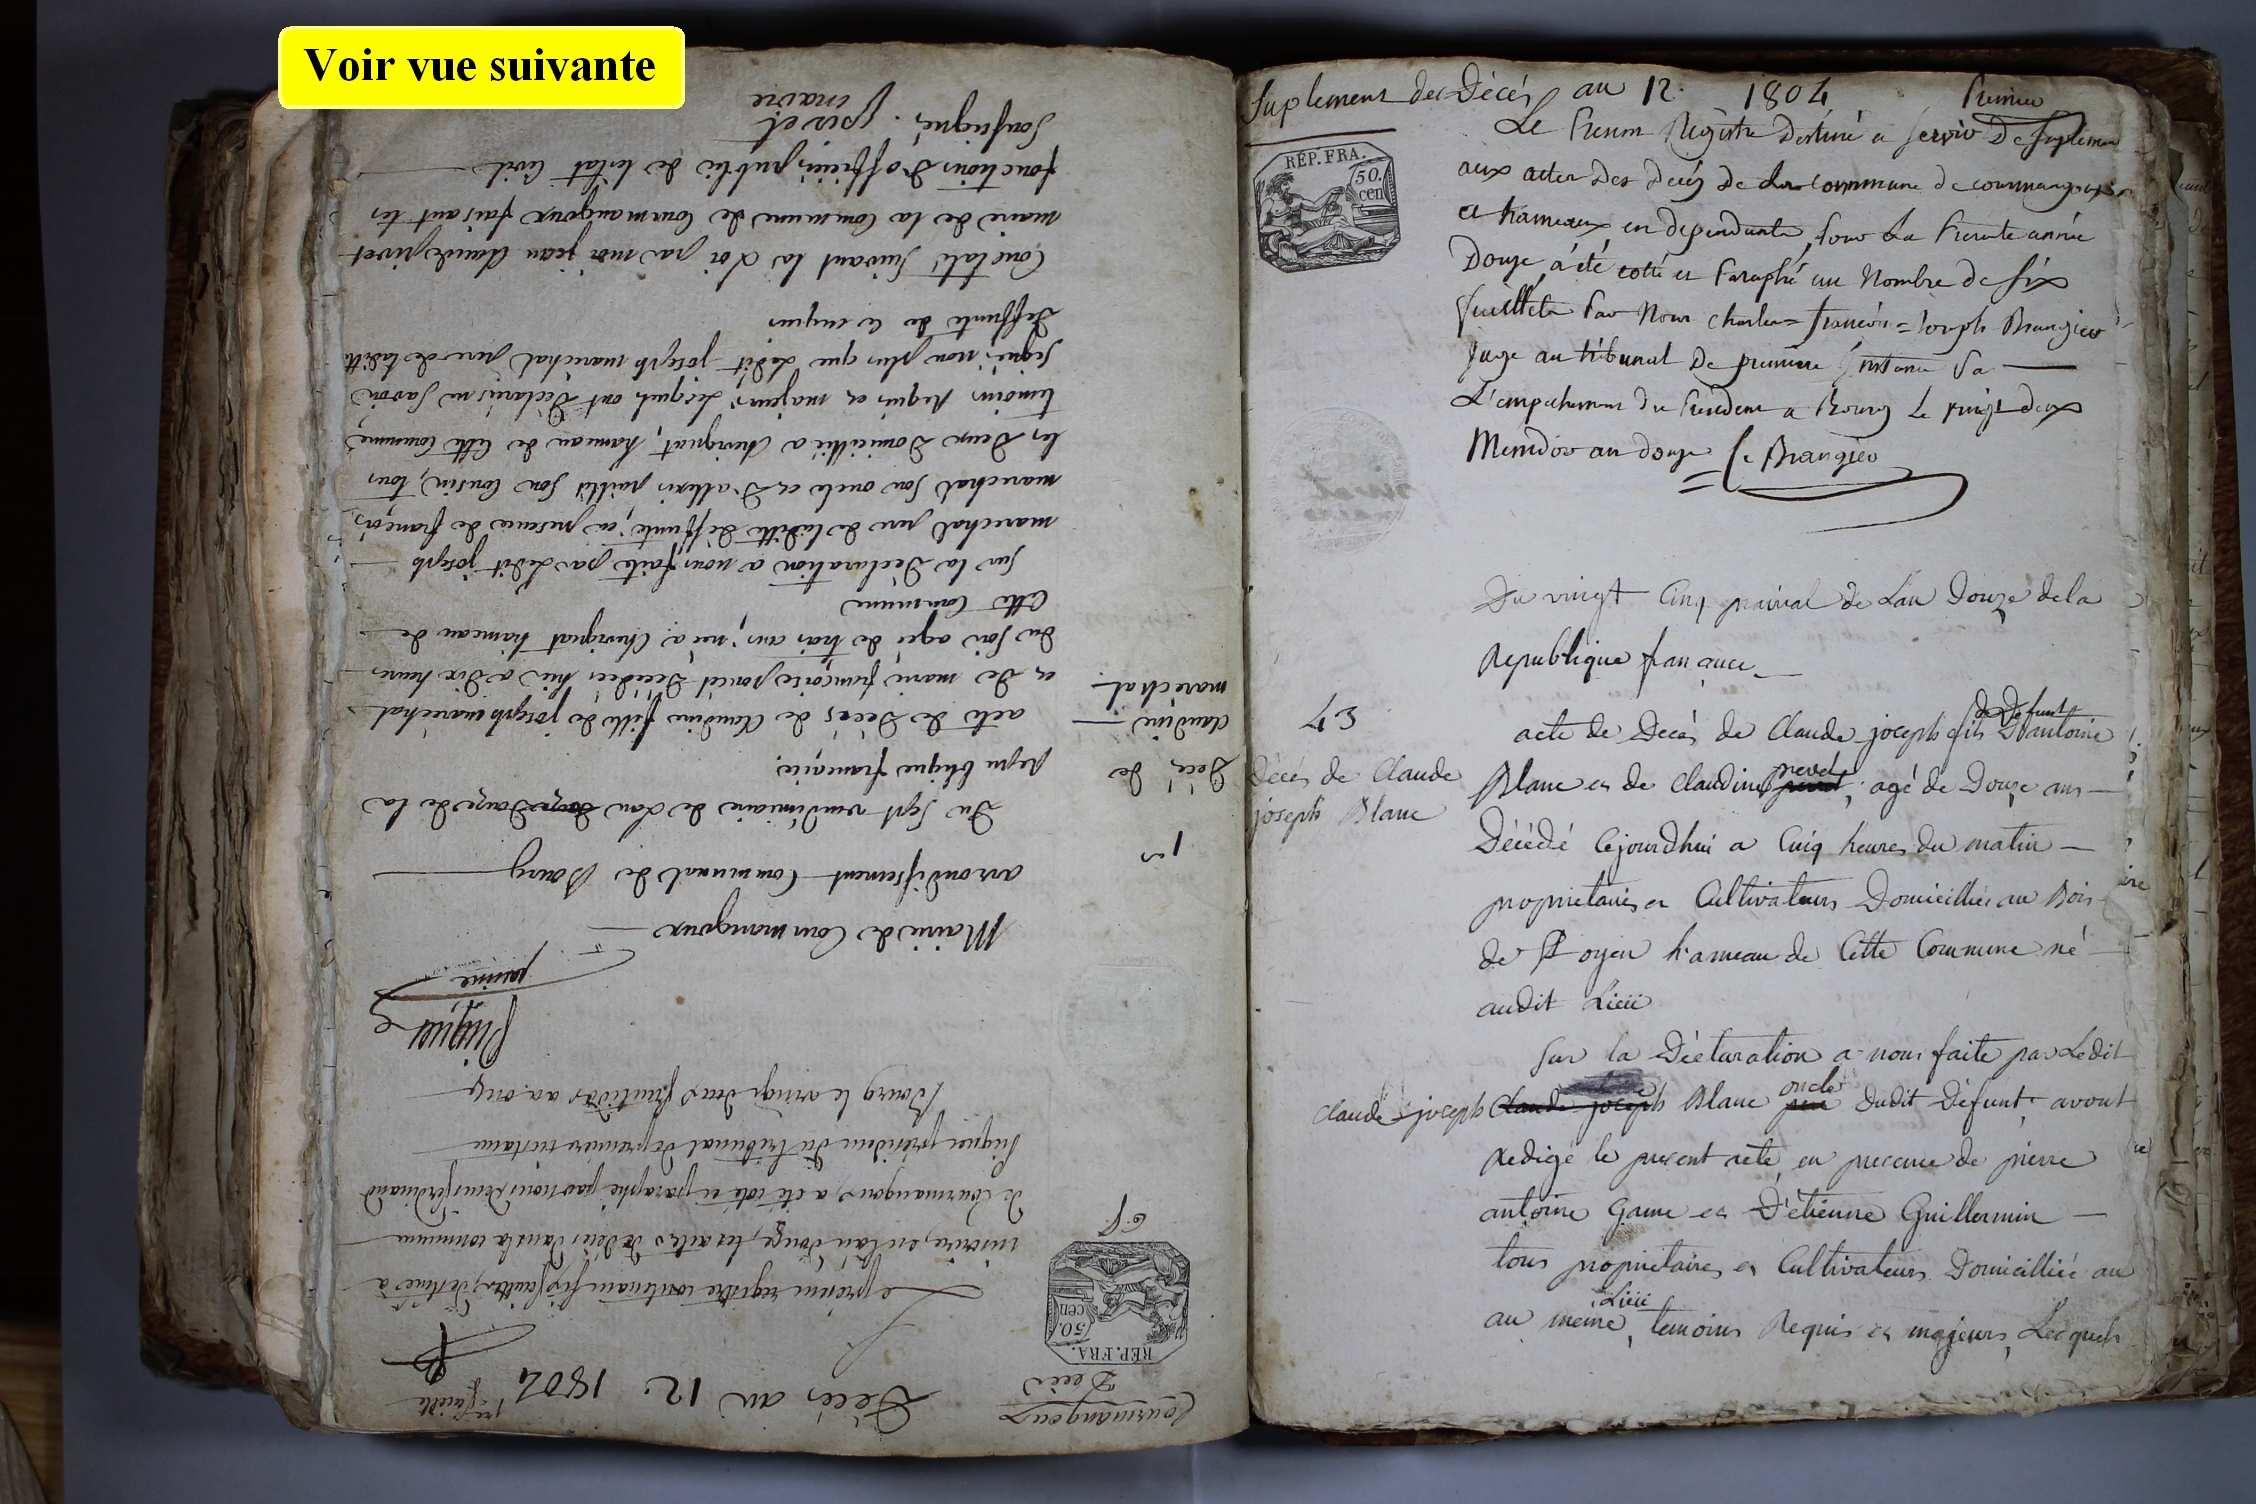 Voir vue suivante
Suplement des Décés an 12. 1804 Premier
Le Present Registre Destiné a servir De Suplement
aux actes Des Decés De la Commune de courmangoux
et hameaux en dependants, pour La Presente année
Douze, a été cotté et Paraphé au Nombre de Six
feuillets Par Nous Charles = françois = Joseph Brangier
Juge au tribunal De premiere Instance Pa
L'empechement du President a Bourg Le vingt deux
Messidor an douze
Brangier
RÉP. FRA.
50.
cen
Du vingt Cinq prairial de Lan Douze de la
Republique francaice
43
Décés de Claude
joseph Blanc
acte de Décés de Claude joseph fils de Defunt D'antoine
Blanc et de Claudine pevet, agé de Douze ans
Décédé Cejourdhui a Cinq heures du matin
proprietaires et Cultivateurs Domicilliés au Bois
de Royen hameau de Cette Commune né
audit Lieu
Sur la Déclaration a nous faite par Ledit
Claude joseph Claude joseph Blanc oncle pere Dudit Defunt, avont
Redigé le present acte en presence de pierre
antoine Game et D'étienne Guillermin
tous proprietaires et Cultivateurs Domicilliés au
au meme Lieu, temoins Requis et majeurs, Lesquels
Courmangoux
Décés
Décés an 12. 1804
1er feuille
RÉP. FRA.
50.
cen
Le présent registre contenant six feuillets, destiné à
inscrire, en l'an douze, les actes de décés dans la commune
de Courmangoux, a été coté et paraphé par nous Denis ferdinand
Piquet président du tribunal de premiere instance
Bourg le vingt deux fructidor an onze
Piquet
Mairie de Courmangoux
arrondissement Communal de Bourg
1
Du Sept vendémiaire de Lan Douze de la
Republique francaice.
Décé de
Claudine
marechal.
acte de Décés de Claudine fille de joseph maréchal
et De marie francoise Décédée hier a Dix heures
du soir agée de trois ans, née a Chevignat hameau de
Cette Commune
Sur la Déclaration a nous faite par Ledit joseph
marechal pere de laditte Deffunte, en presence de françois
marechal son oncle et D'alexis paillet son Cousin, tous
les Deux Domicilliés a Chevignat, hameau de Cette Commune
temoins Requis et majeurs, Lesquels ont Déclarés ne savoir
signer non plus que Ledit joseph marechal pere de laditte
Deffunte de ce enquis
Constaté suivant la Loi par moi jean Claude pivet
maire de la Commune de Courmangoux faisant les
fonctions D'officier public de letat Civil
Soussigné. pivet
maire